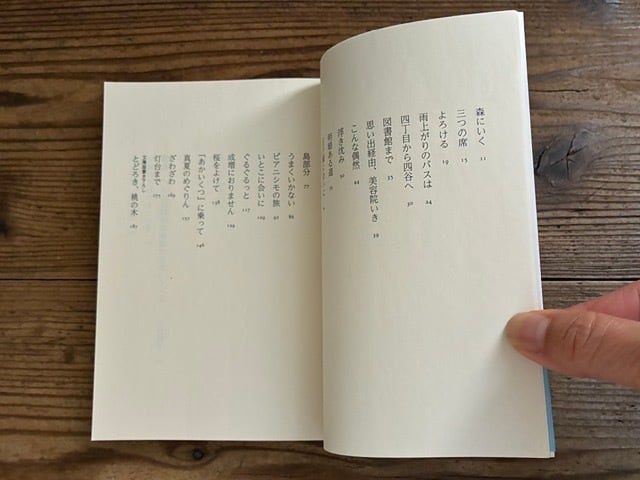 森にいく 11
三つの席 15
よろける 19
雨上がりのバスは 24
四丁目から四谷へ 30
図書館まで 35
思い出経由、美容院いき 39
こんな偶然 44
浮き沈み
島部分 77
うまくいかない
ピアニシモの旅
いとこに会いに 109
ぐるぐるっと 117
成増におりません 129
桜をよけて 138
「あかいくつ」に乗って 146
真夏のめぐりん 157
ざわざわ 169
灯台まで 175
文庫版書き下ろし
とどろき、桃の木 187